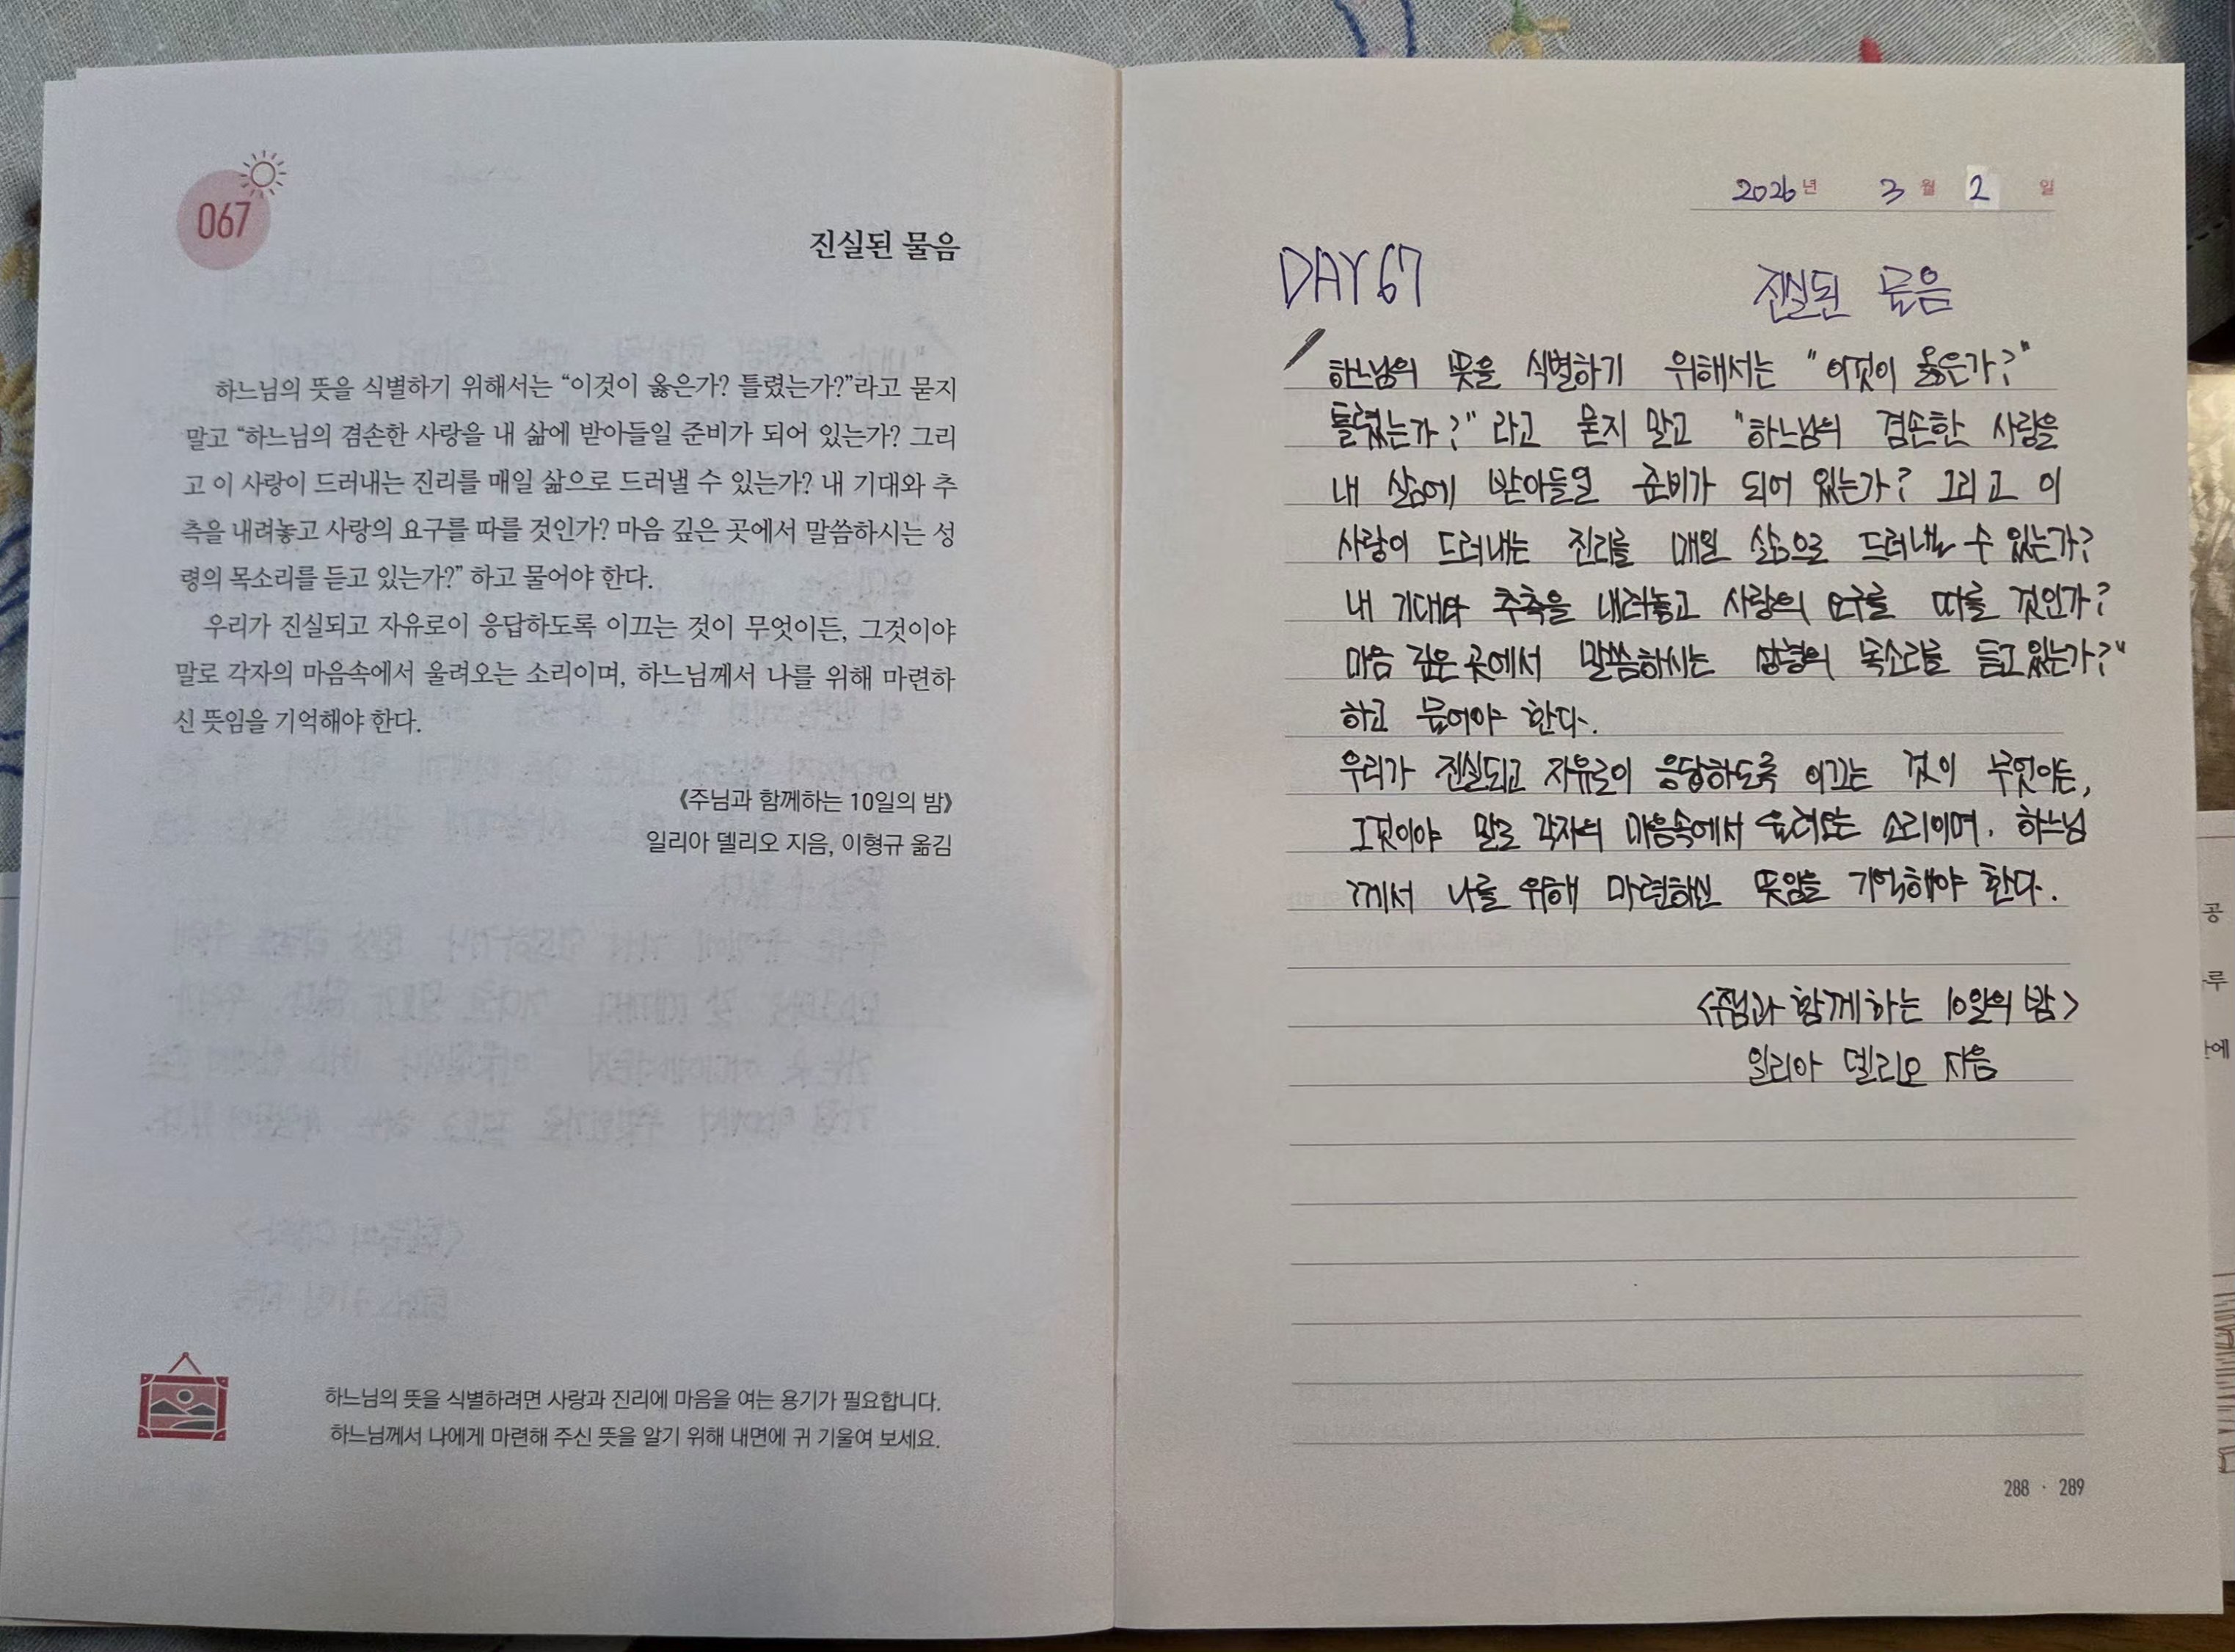 067
진실된 물음
하느님의 뜻을 식별하기 위해서는 “이것이 옳은가? 틀렸는가?”라고 묻지
말고 “하느님의 겸손한 사랑을 내 삶에 받아들일 준비가 되어 있는가? 그리
고 이 사랑이 드러내는 진리를 매일 삶으로 드러낼 수 있는가? 내 기대와 추
측을 내려놓고 사랑의 요구를 따를 것인가? 마음 깊은 곳에서 말씀하시는 성
령의 목소리를 듣고 있는가?” 하고 물어야 한다.
우리가 진실되고 자유로이 응답하도록 이끄는 것이 무엇이든, 그것이야
말로 각자의 마음속에서 울려오는 소리이며, 하느님께서 나를 위해 마련하
신 뜻임을 기억해야 한다.
《주님과 함께하는 10일의 밤》
일리아 델리오 지음, 이형규 옮김
하느님의 뜻을 식별하려면 사랑과 진리에 마음을 여는 용기가 필요합니다.
하느님께서 나에게 마련해 주신 뜻을 알기 위해 내면에 귀 기울여 보세요.
2026년 3월 2일
DAY 67 진실된 물음
하느님의 뜻을 식별하기 위해서는 "이것이 옳은가?"
틀렸는가?" 라고 묻지 말고 "하느님의 겸손한 사랑을
내 삶에 받아들일 준비가 되어 있는가? 그리고 이
사랑이 드러내는 진리를 매일 삶으로 드러낼 수 있는가?
내 기대와 추측을 내려놓고 사랑의 요구를 따를 것인가?
마음 깊은 곳에서 말씀하시는 의 목소리를 듣고 있는가?"
하고 물어야 한다.
우리가 진실되고 자유로이 응답하도록 이끄는 것이 무엇이든,
그것이야 말로 각자의 마음속에서 울려오는 소리이며, 하느님
께서 나를 위해 마련하신 뜻임을 기억해야 한다.
<주님과 함께하는 10일의 밤>
일리아 델리오 지음
288 · 289
공
루
에